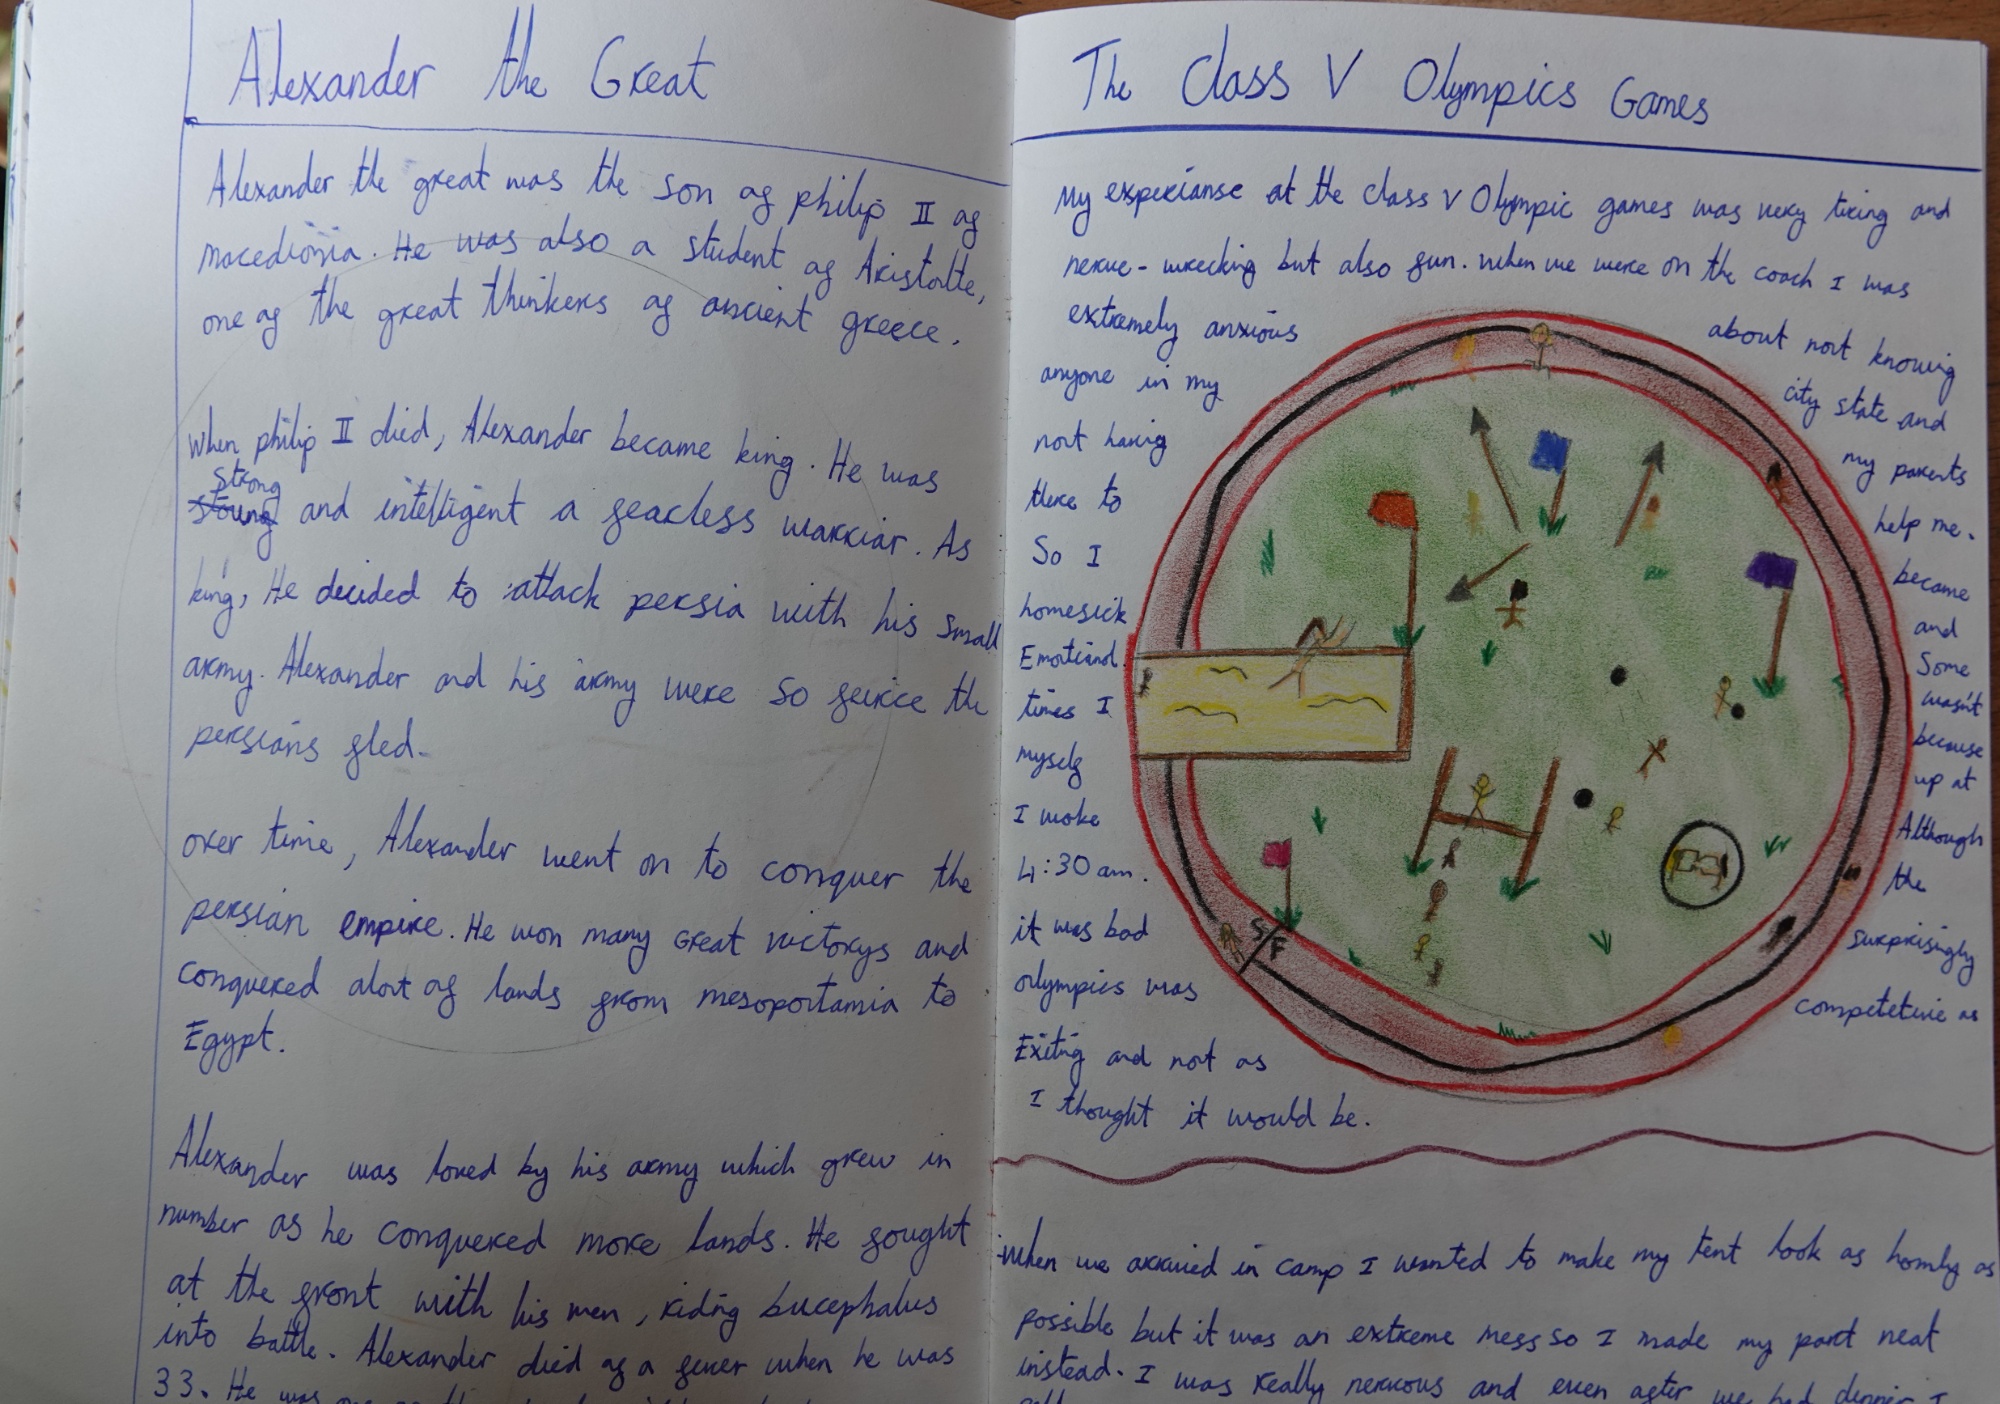 Alexander the Great
Alexander the great was the son of philip II of
macedonia. He was also a student of Aristotle,
one of the great thinkers of ancient greece.
When philip II died, Alexander became king. He was
strong
and intelligent a fearless warriar. As
king, He decided to attack persia with his small
army. Alexander and his army were so feirce the
persians fled.
over time, Alexander went on to conquer the
persian empire. He won many Great victorys and
conquered alot of lands from mesopotamia to
Egypt.
Alexander was loved by his army which grew in
number as he conquered more lands. He fought
at the front with his men, riding bucephalus
into battle. Alexander died of a fever when he was
33. He was
The Class V Olympics Games
My experianse at the class V Olympic games was very tiring and
nerve-wrecking but also fun. When we were on the coach I was
extremely anxious about not knowing
anyone in my city state and
not having my parents
there to help me.
So I became
homesick and
Emotional. Some
times I wasn't
myself because
I woke up at
4:30 am. Although
it was bad the
olympics was surprisingly
Exiting and not as competetive as
I thought it would be.
S/F
When we arrived in camp I wanted to make my tent look as homly as
possible but it was an extreme mess so I made my part neat
instead. I was really nervous and even after we had dinner I